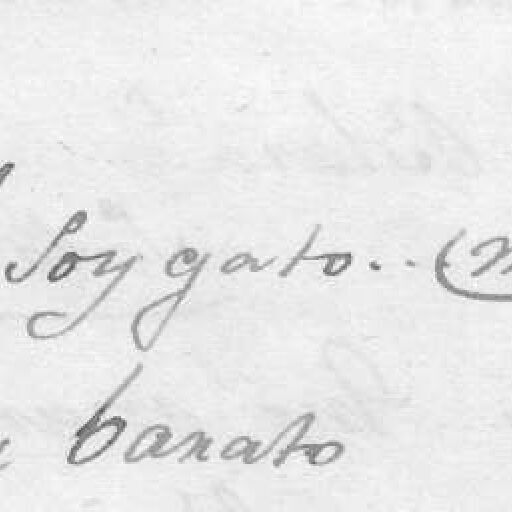 Soy gato.. (
barato